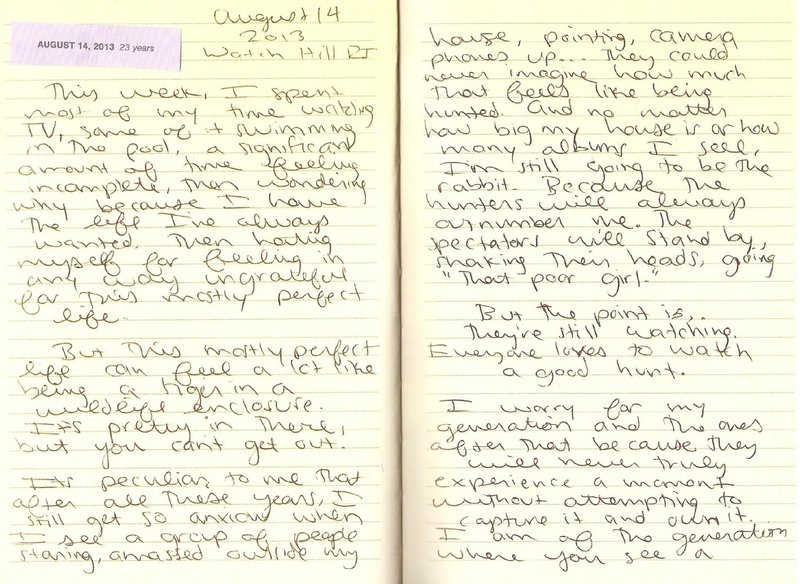 AUGUST 14, 2013 23 years
August 14
2013
Watch Hill RI
This week, I spent
most of my time watching
TV, some of it swimming
in the pool, a significant
amount of time feeling
incomplete, then wondering
why because I have
the life I've always
wanted. Then hating
myself for feeling in
any way ungrateful
for this mostly perfect
life.
But this mostly perfect
life can feel a lot like
being a tiger in a
wildlife enclosure.
It's pretty in there,
but you can't get out.
It's peculiar to me that
after all these years, I
still get so anxious when
I see a group of people
staring, amassed outside my
house, pointing, camera
phones up... They could
never imagine how much
that feels like being
hunted. And no matter
how big my house is or how
many albums I sell,
I'm still going to be the
rabbit. Because the
hunters will always
outnumber me. The
spectators will stand by,
shaking their heads, going
"That poor girl."
But the point is,.
They're still watching.
Everyone loves to watch
a good hunt.
I worry for my
generation and the ones
after that because they
will never truly
experience a moment
without attempting to
capture it and own it.
I am of the generation
where you see a